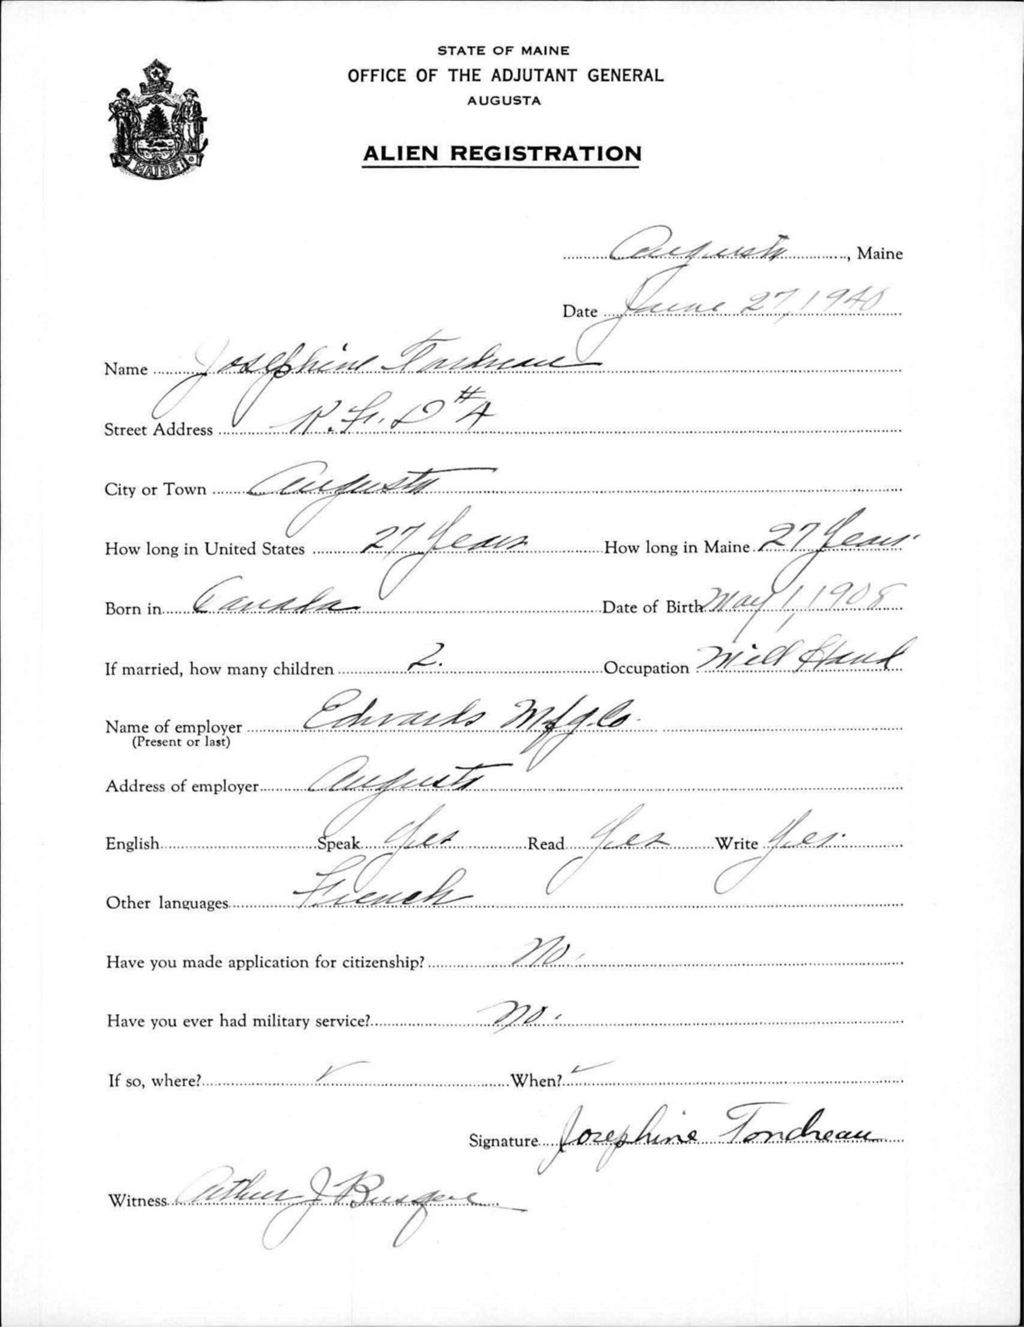 STATE OF MAINE
OFFICE OF THE ADJUTANT GENERAL
AUGUSTA
ALIEN REGISTRATION
MAINE
Augusta, Maine
Date June 27, 1940
Name Josephine Tondreau
Street Address R.F.D #4
City or Town Augusta
How long in United States 27 Years How long in Maine 27 Years
Born in Canada Date of Birth May 1, 1908
If married, how many children 2. Occupation Mill Hand
Name of employer Edwards Mfg. Co.
(Present or last)
Address of employer Augusta
English Speak Yes Read Yes Write Yes.
Other languages French
Have you made application for citizenship? No.
Have you ever had military service? No.
If so, where? ✓ When? ✓
Signature Josephine Tondreau
Witness Arthur J